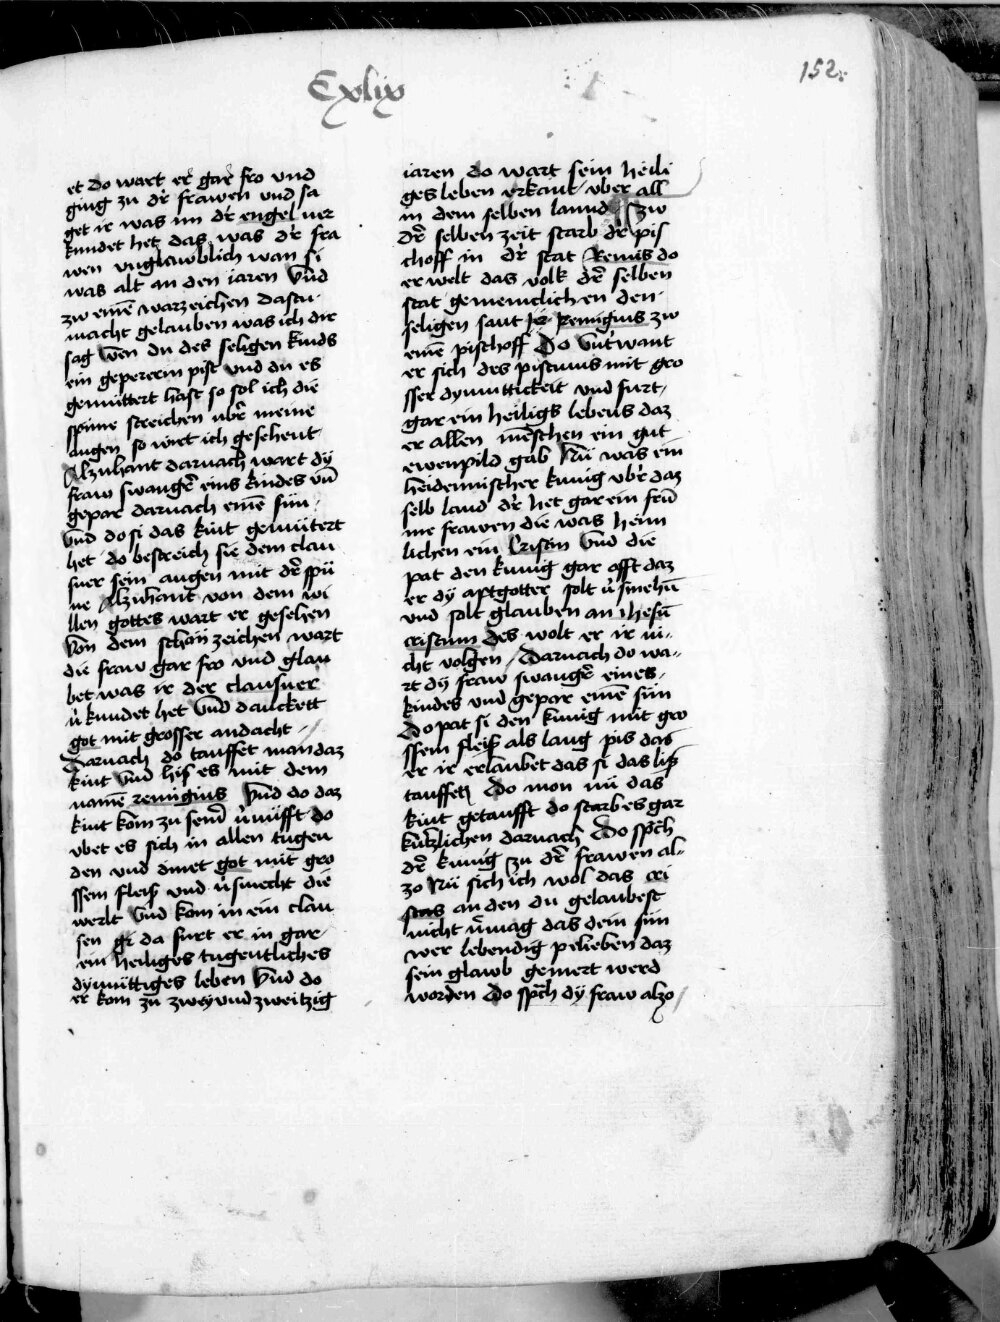 Cxlix
152.
et do wart er gar fro und
ging zu dr̄ frawen und sa
get ir was im dr̄ engel uer
kundet het das was dr̄ fra
wen unglawblich wan si
was alt an den iaren Vnd
zw einē warzeichen dastu
macht gelauben was ich dir
sag wen du des seligen kinds
ein gepererin pist und du es
gemuttert hast so sol ich die
spune streichen ubr̄ meine
augen so wirt ich gesehent
Alzuhant darnach wart dy
fraw swangr̄ eins kindes un̄
gepar darnach einē sun
Vnd do si das kint gemutert
het do bestreich sie dem clau
sner sein augen mit dr̄ spu
ne Alzuhant von dem wi
llen gottes wart er gesehen
Von dem schon zeichen wart
die fraw gar fro vnd glau
bet was ir der clausner
v̄kundet het Vnd danckett
got mit grosser andacht
Darnach do tauffet man daz
kint Vnd his es mit dem
namē remigius Vnd do daz
kint kom zu seinr̄ v̄nufft do
vbet es sich in allen tugen
den vnd dinet got mit gro
ssem fleiß vnd v̄smecht die
werlt Vnd kom in ein clau
sen da furt er in gar
ein heiliges tugentliches
dymuttiges leben Vnd do
er kom zu zwey vnd zweitzig
iaren do wart sein heili
ges leben erkant vber all
in dem selben lannd Zw
dr̄ selben zeit starb dr̄ pis
choff in dr̄ stat Remis do
er welt das volk dr̄ selben
stat gemeinclichen den
seligen sant Remigius zw
einē pischoff Do vntwant
er sich des pistums mit gro
sser dymuttickeit vnd furt
gar ein heiligs lebens daz
er allen mēschen ein gut
ewenpild gab Nu was ein
heidennischer kunig vbr̄ daz
selb land dr̄ het gar ein frū
me frawen die was heim
lichen ein Cristin Vnd die
pat den kunig gar offt daz
er dy aptgotter solt v̄smehn̄
vnd solt glauben an ihesū
cristum des wolt er ir ni
cht volgen Darnach do wa
rt dy fraw swangr̄ eines
kindes vnd gepar einē sun
Do pat si den kunig mit gro
ssem fleiß als lang pis das
er ir erlaubet das si das liß
tauffen Do mon nu das
kint getaufft do starb es gar
kutzlichen darnach Do sp̄ch
dr̄ kunig zu dr̄ frawen al
zo Nu sich ich wol das cri
stus an den du gelaubest
nicht v̄mag das dem sun
wer lebendig pelieben daz
sein glawb gemert werd
worden Do sp̄ch dy fraw alzo